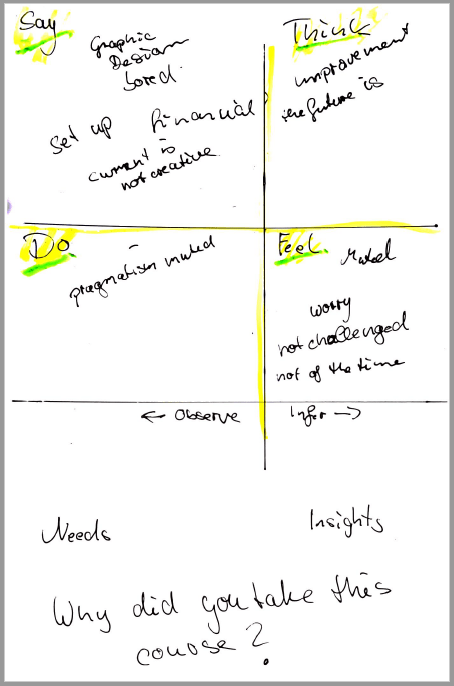 Say
Graphic
Design
bored
set up financial
current is
not creative
Think
improvement
the future is
Do
pragmatism muted
Feel
Muted
worry
not challenged
not of the time
← Observe
Infer →
Needs
Insights
Why did you take this
course?